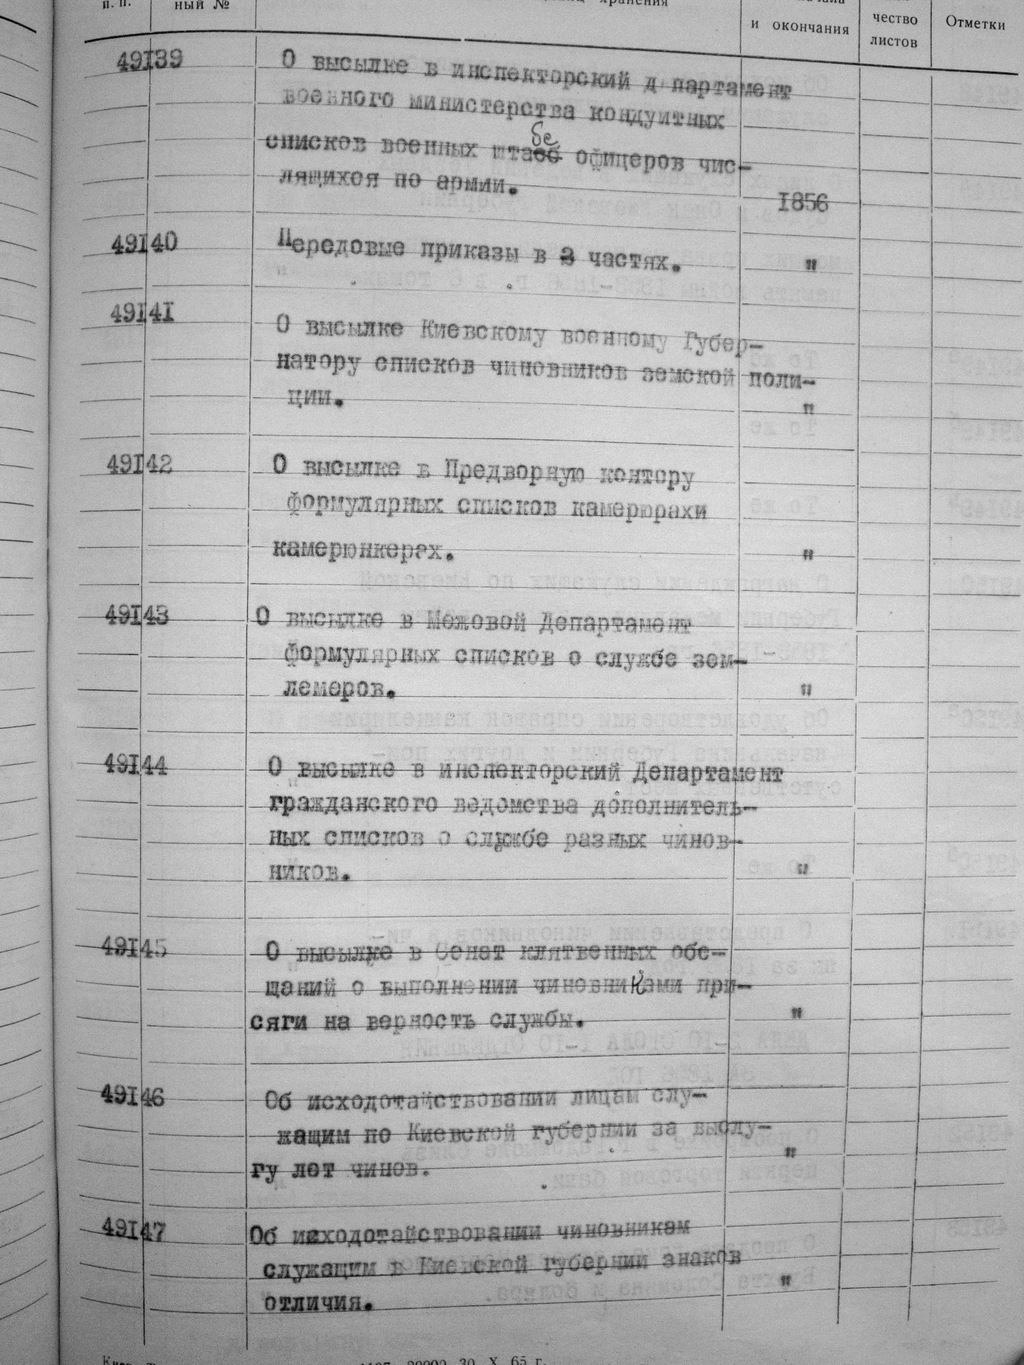 п. п.
ный №
хранения
и окончания
чество
листов
Отметки
49139
О высылке в инспекторский д партамент
военного министерства кондуитных
бе
списков военных штабб офицеров чис-
лящихся по армии.
1856
49140
Передовые приказы в 3 частях.
"
49141
О высылке Киевскому военному Губер-
натору списков чиновников земской поли-
ции.
"
49142
О высылке в Предворную контору
формулярных списков камерюрахи
камерюнкерах.
"
49143
О высылке в Межовой Департамент
формулярных списков о службе зем-
лемеров.
"
49144
О высылке в инспекторский Департамент
гражданского ведомства дополнитель-
ных списков о службе разных чинов-
ников.
"
49145
О высылке в Сенат клятвенных обе-
щаний о выполнении чиновниками при-
сяги на верность службы.
"
49146
Об исходотайствовании лицам слу-
жащим по Киевской губернии за выслу-
гу лет чинов.
"
49147
Об исходотайствовании чиновникам
служащим в Киевской губернии знаков
отличия.
"
30. X. 65 г.